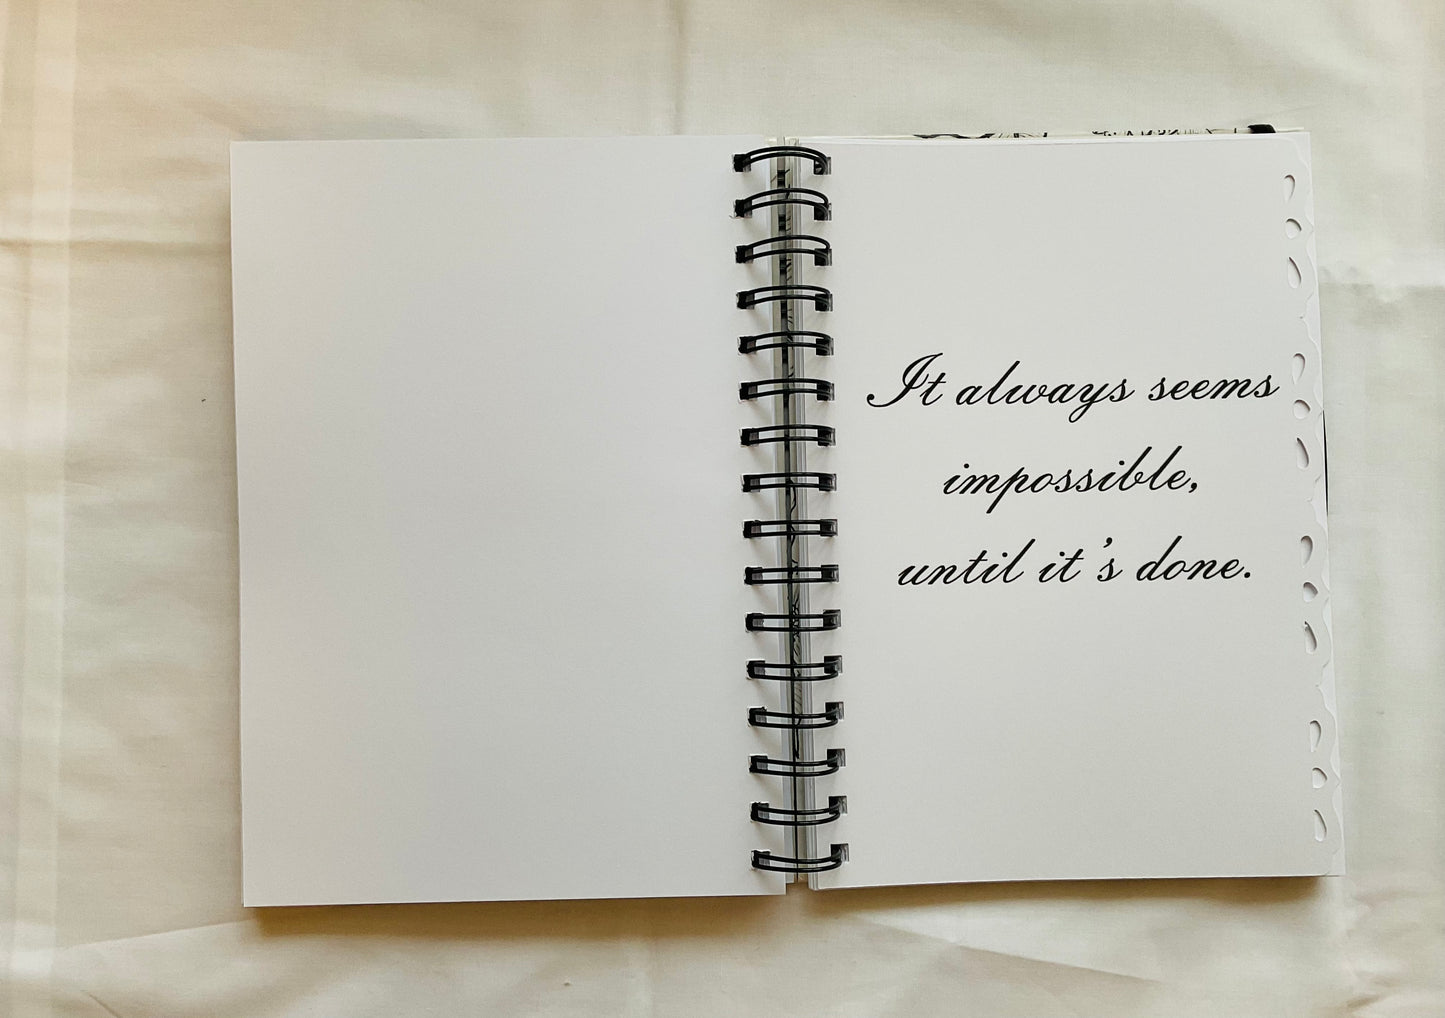 It always seems
impossible,
until it's done.